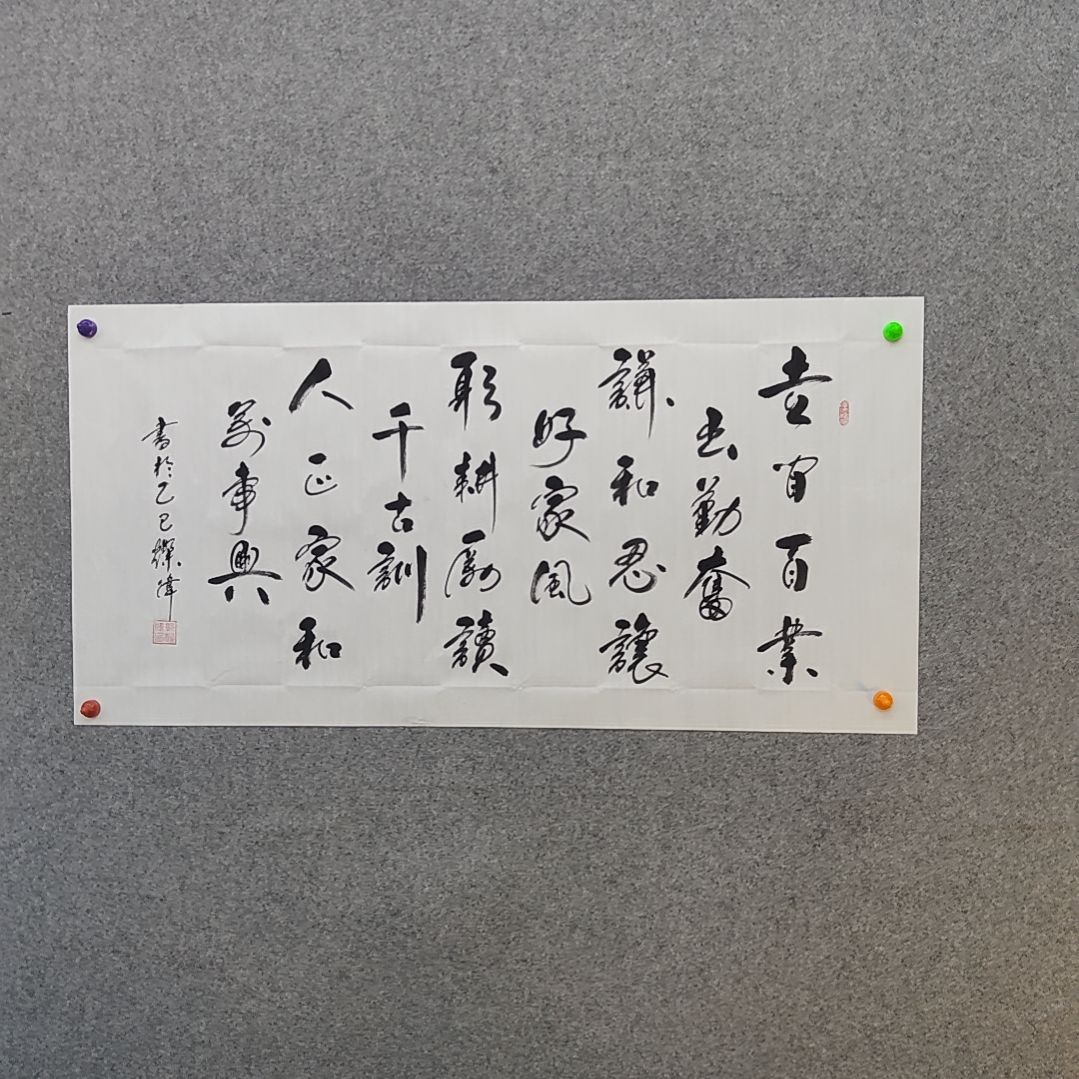 百業
出勤奮
謙和忍讓
好家風
耕勵讀
千古訓
人正家和
萬事興
書於乙巳